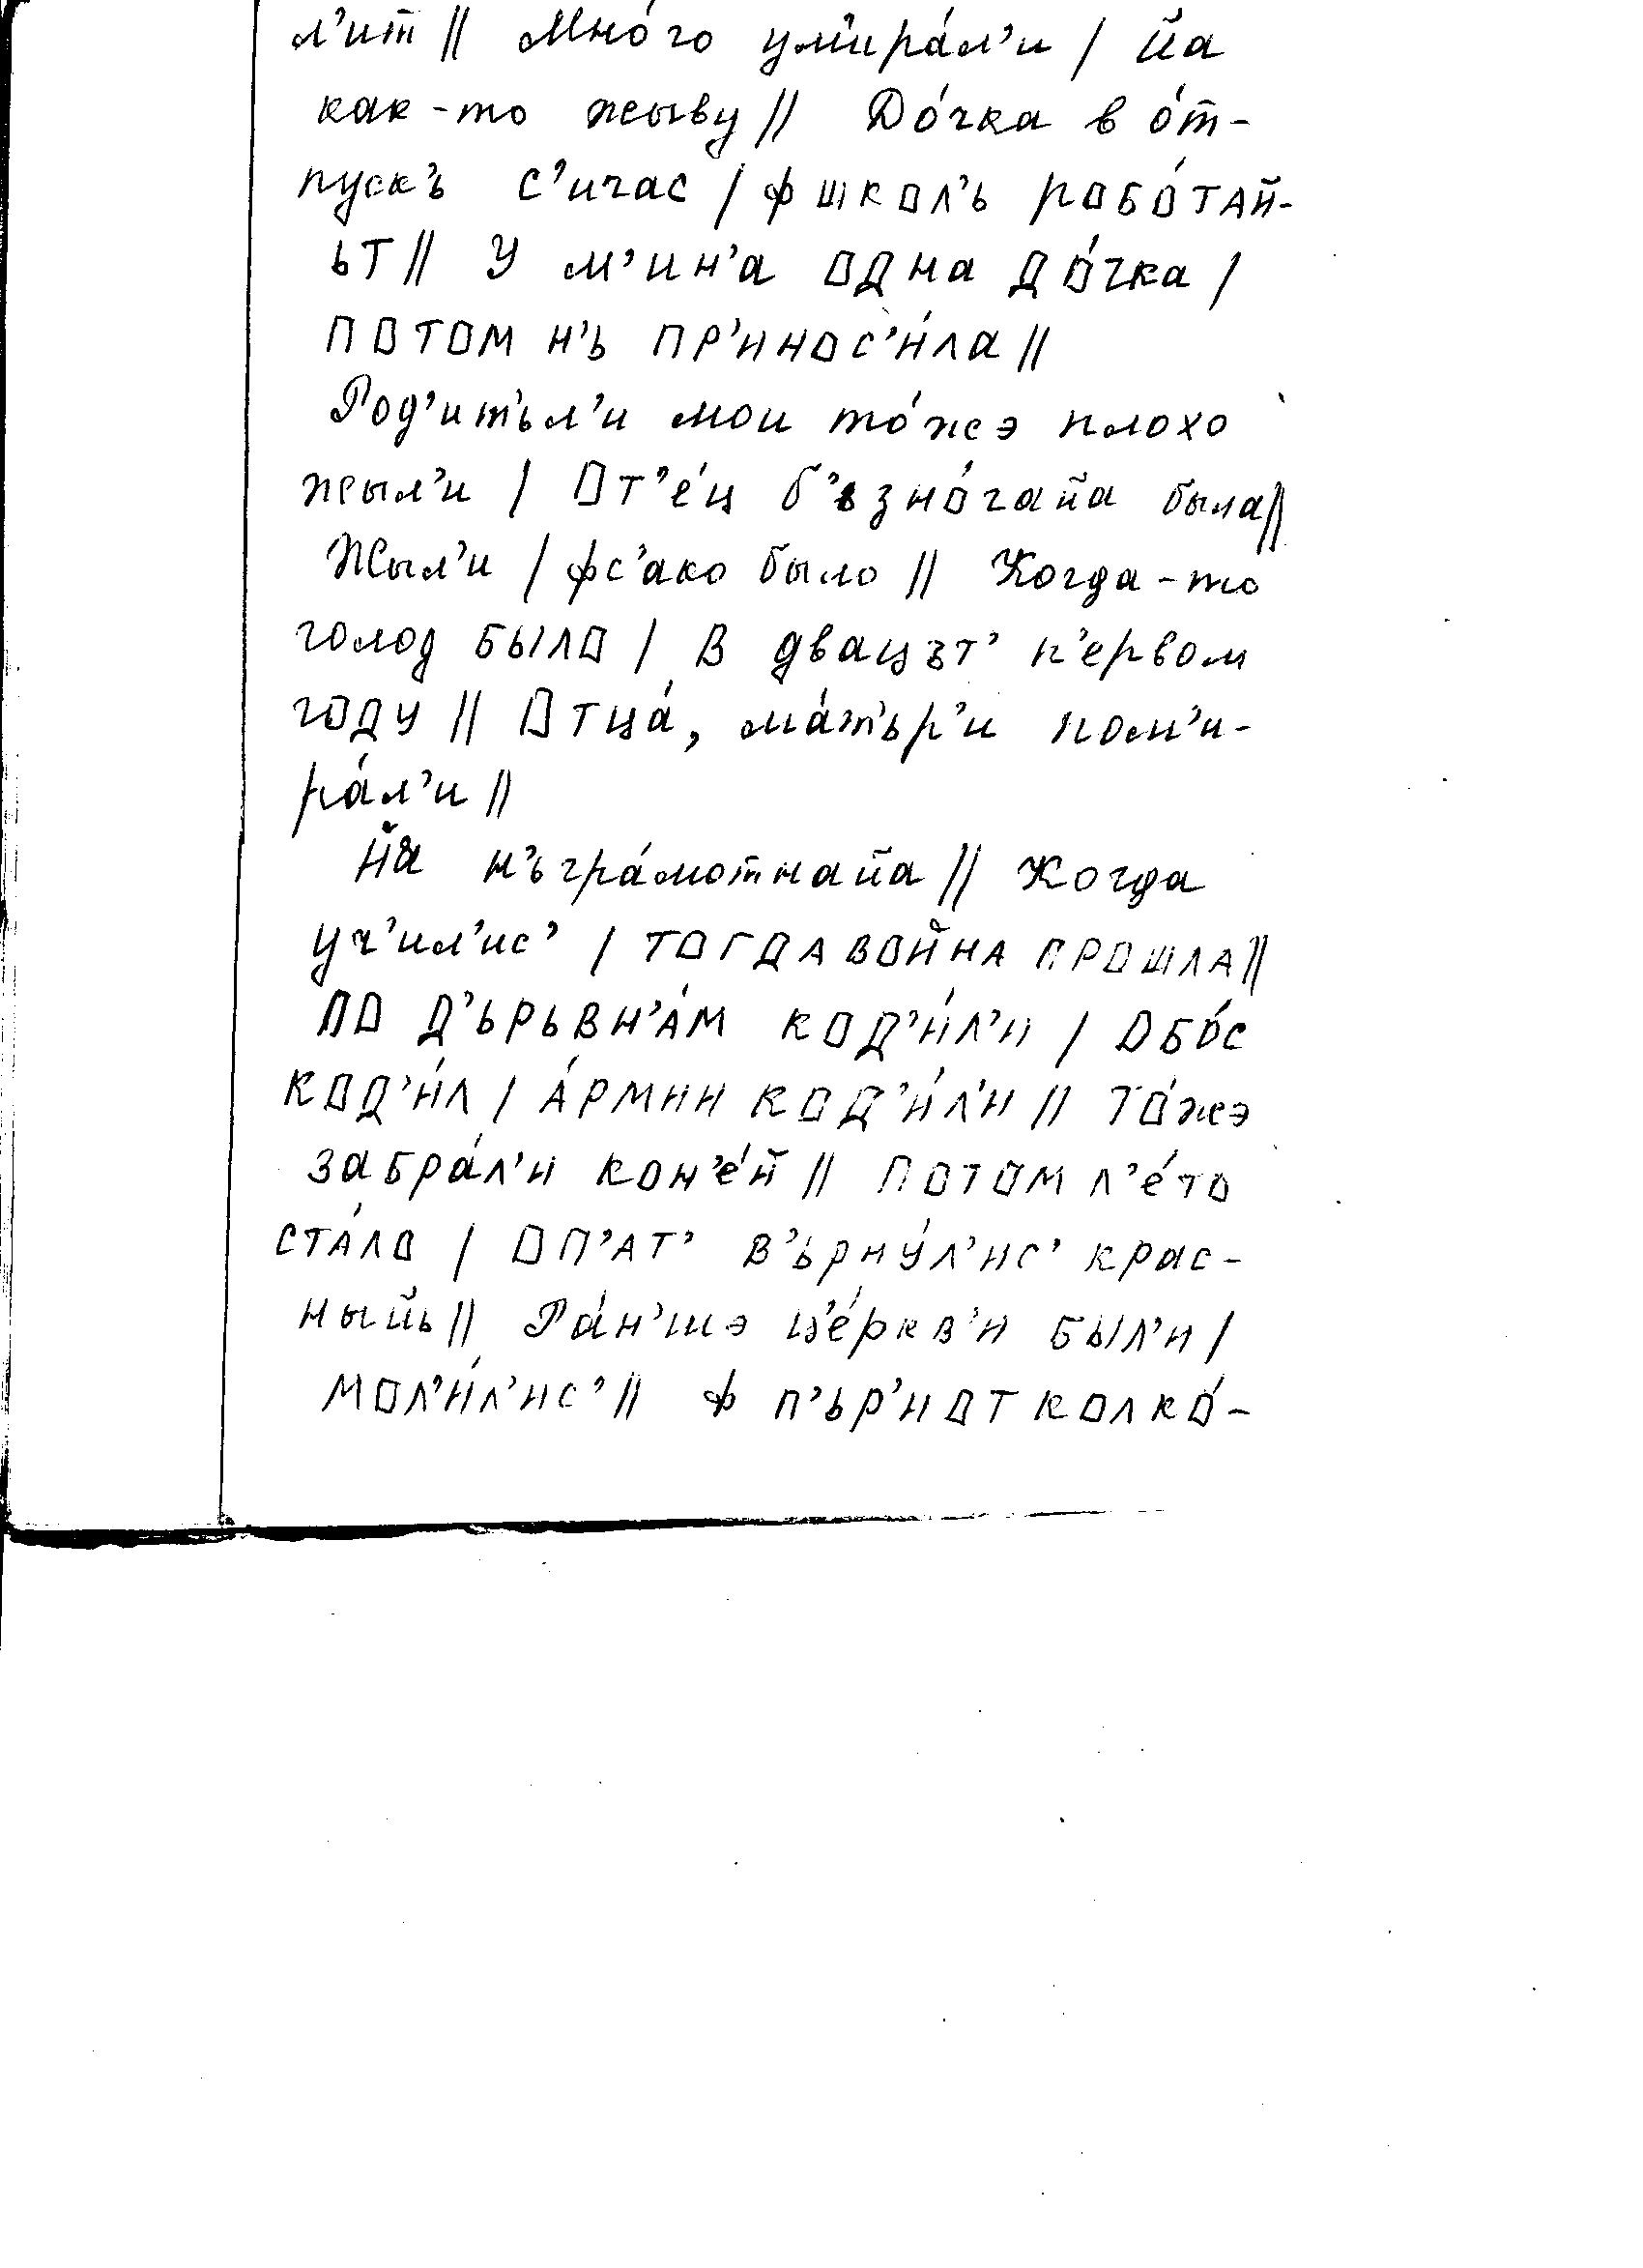 л’ит || Мно́го ум’ира́л’и | йа
как-то жыву || До́чка в о́т-
пускъ с’ичас | ф школ’ь робо́тай-
ьт || У м’ин’а одна до́чка |
потом н’ь пр’инос’и́ла ||
Род’ит’ьл’и мои то́жэ плохо
жыл’и | От’е́ц б’ьзно́гайа была ||
Жыл’и | фс’ако было || Когда-то
голод было | В двацът’ п’ервом
году || Отца́, ма́т’ьр’и пом’и-
ра́л’и ||
Йа н’ьгра́мотнайа || Когда
уч’ил’ис’ | тогда война прошла ||
По д’ьрьвн’а́м код’и́л’и | обо́с
код’и́л | а́рмии код’и́л’и || То́жэ
забра́л’и кон’е́й || Потом л’е́то
ста́ло | оп’ат’ в’ьрну́л’ис’ крас-
ныйь || Ра́н’шэ ц’е́ркв’и был’и |
мол’и́л’ис’ || Ф п’ьр’иот колко́-